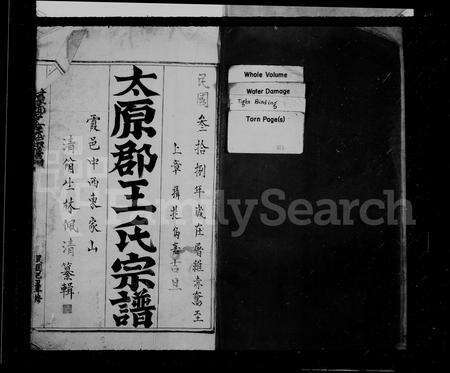 民國叁拾捌年歲在屠維赤奮若
上章攝提角嘉吉旦
太原郡王氏宗譜
霞邑中西東家山
清附生林佩清纂輯
Whole Volume
Water Damage
Tight Binding
Torn Page(s)
FamilySearch